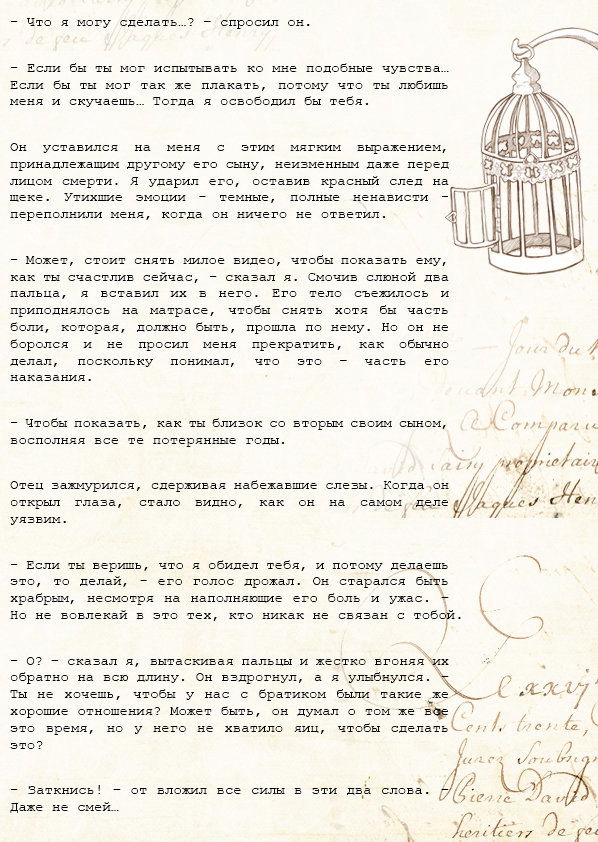 – Что я могу сделать…? – спросил он.
– Если бы ты мог испытывать ко мне подобные чувства…
Если бы ты мог так же плакать, потому что ты любишь
меня и скучаешь… Тогда я освободил бы тебя.
Он уставился на меня с этим мягким выражением,
принадлежащим другому его сыну, неизменным даже перед
лицом смерти. Я ударил его, оставив красный след на
щеке. Утихшие эмоции – темные, полные ненависти –
переполнили меня, когда он ничего не ответил.
– Может, стоит снять милое видео, чтобы показать ему,
как ты счастлив сейчас, – сказал я. Смочив слюной два
пальца, я вставил их в него. Его тело съежилось и
приподнялось на матрасе, чтобы снять хотя бы часть
боли, которая, должно быть, прошла по нему. Но он не
боролся и не просил меня прекратить, как обычно
делал, поскольку понимал, что это – часть его
наказания.
– Чтобы показать, как ты близок со вторым своим сыном,
восполняя все те потерянные годы.
Отец зажмурился, сдерживая набежавшие слезы. Когда он
открыл глаза, стало видно, как он на самом деле
уязвим.
– Если ты веришь, что я обидел тебя, и потому делаешь
это, то делай, – его голос дрожал. Он старался быть
храбрым, несмотря на наполняющие его боль и ужас. –
Но не вовлекай в это тех, кто никак не связан с тобой.
– О? – сказал я, вытаскивая пальцы и жестко вгоняя их
обратно на всю длину. Он вздрогнул, а я улыбнулся. –
Ты не хочешь, чтобы у нас с братиком были такие же
хорошие отношения? Может быть, он думал о том же все
это время, но у него не хватило яиц, чтобы сделать
это?
– Заткнись! – от вложил все силы в эти два слова. –
Даже не смей…
Jour du
Cents trente,
David
heritiers de